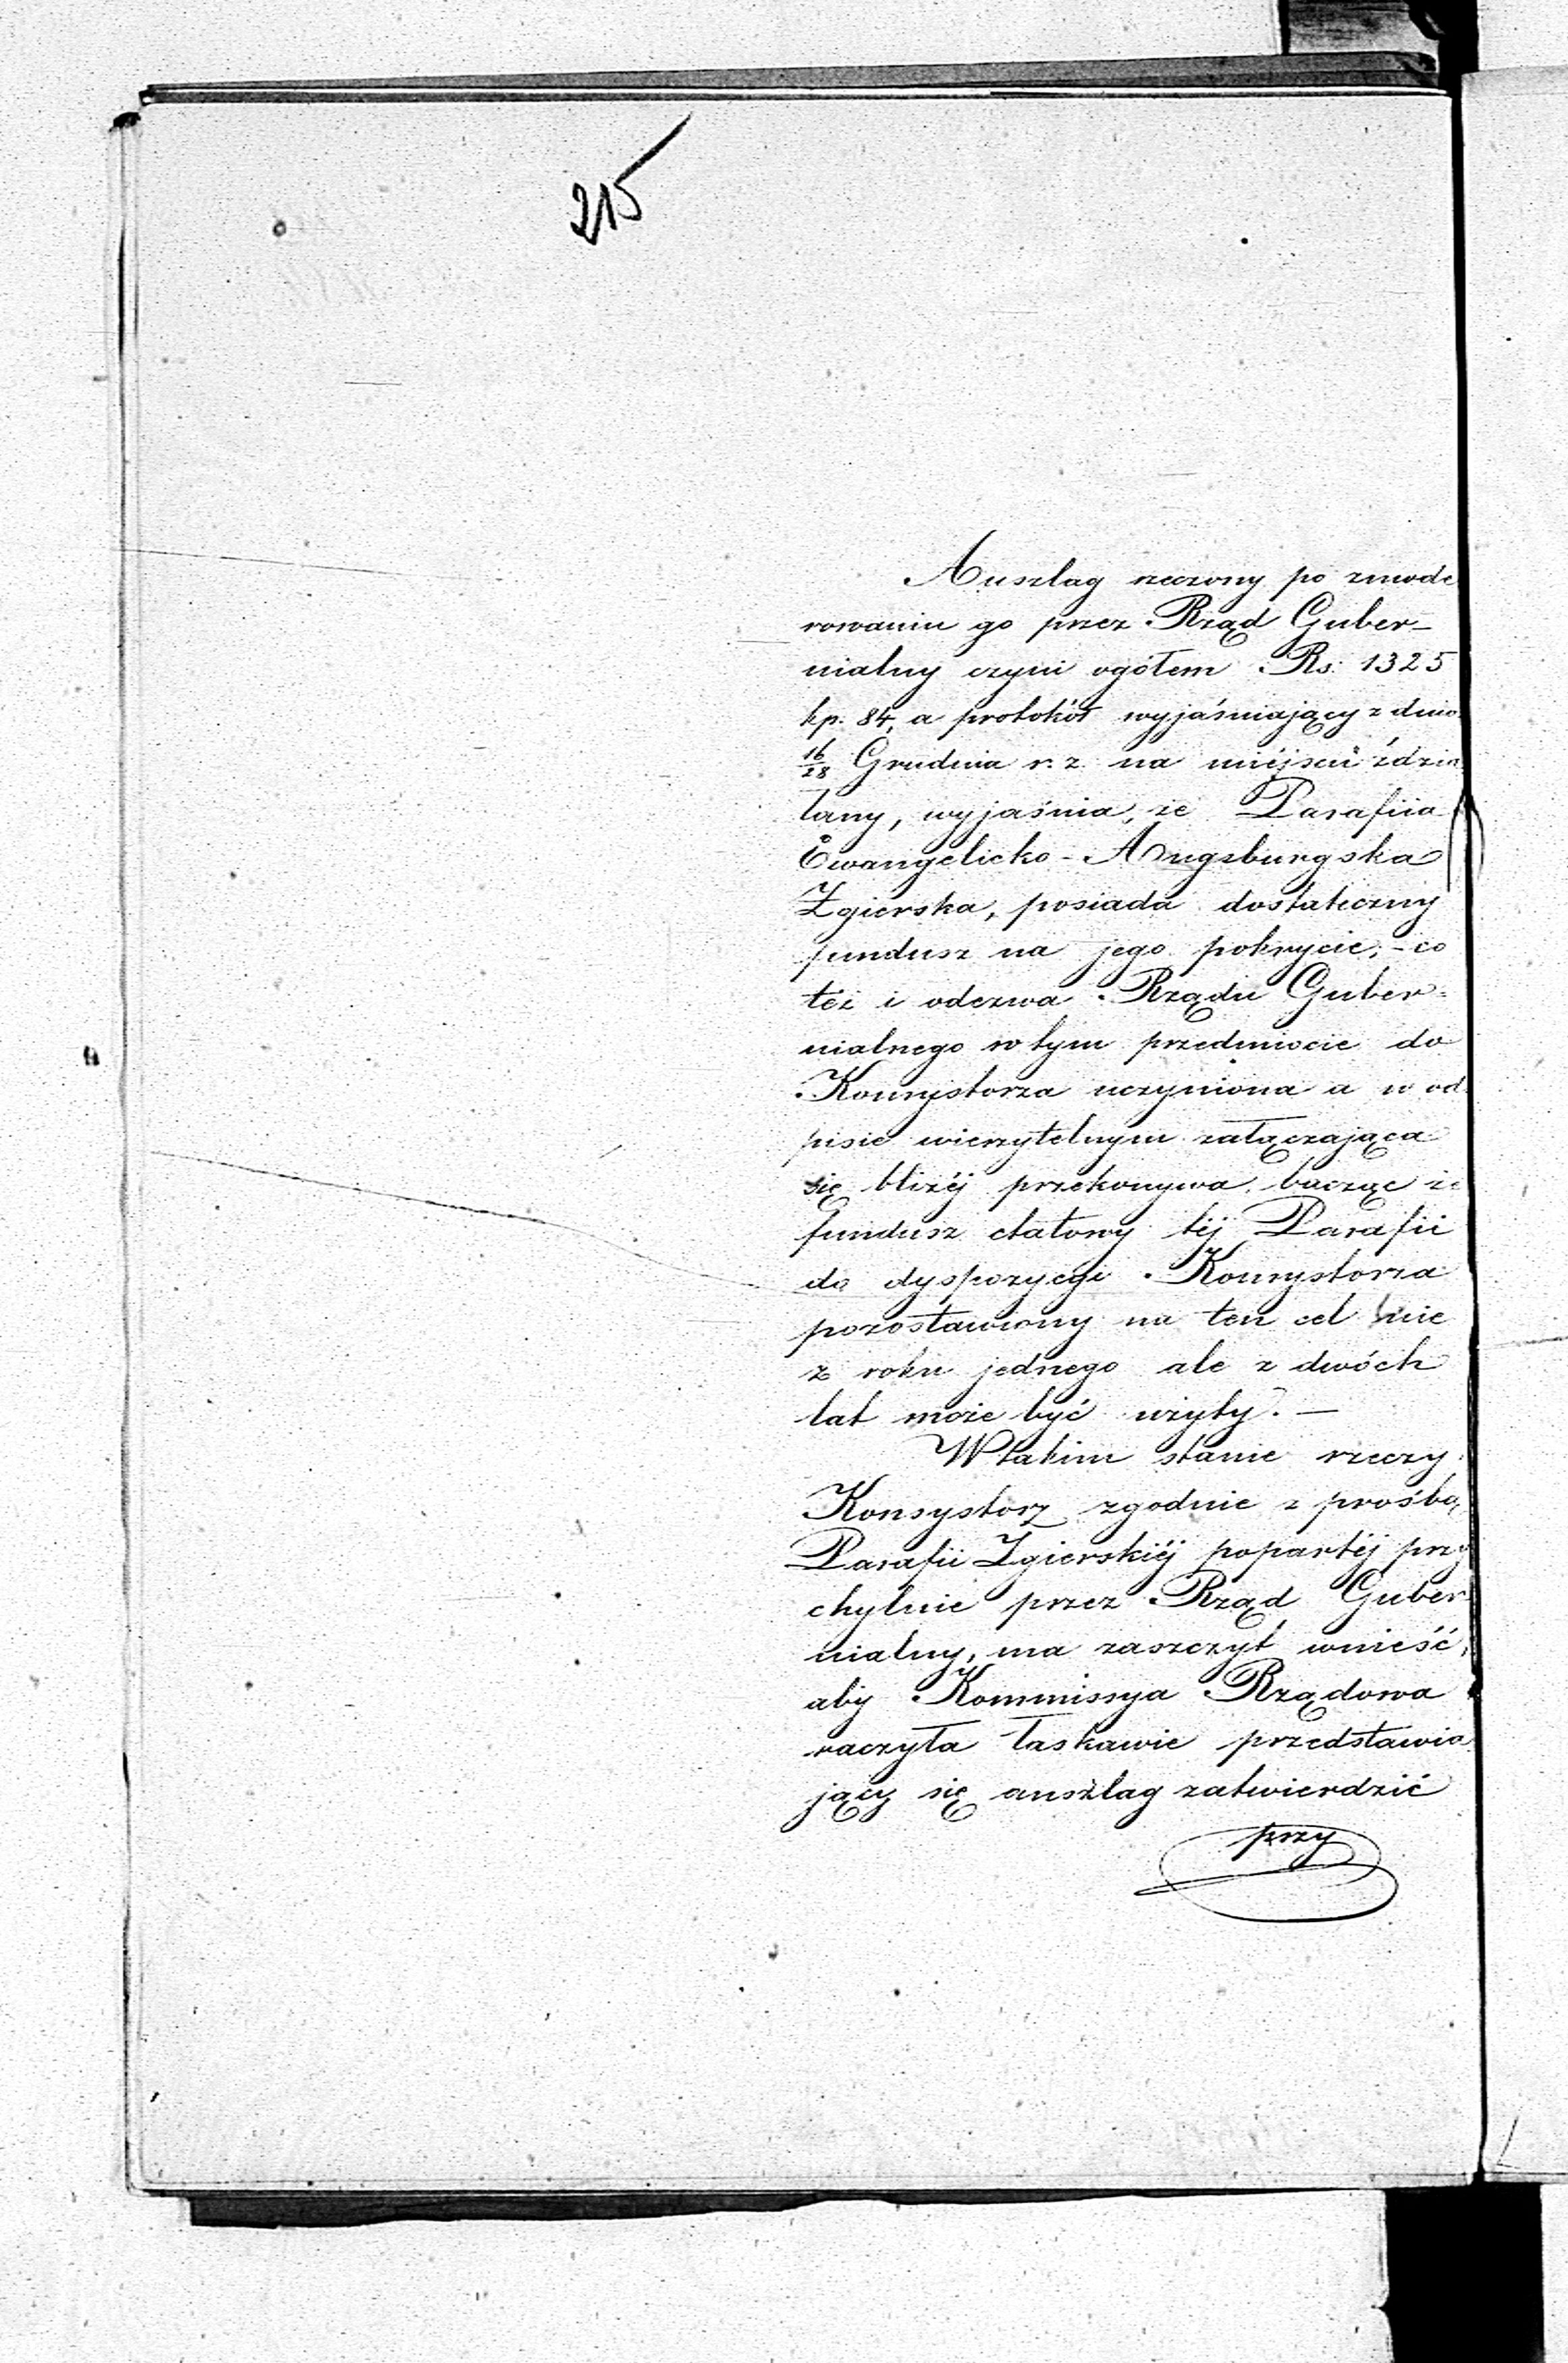 215
Anszlag rzeczony po zmode
rowaniu go przez Rząd Guber-
nialny czyni ogółem Rs. 1325
kp. 84, a protokół wyjaśniający z dnia
16/28 Grudnia r. z. na miéjscu zdzia
łany, wyjaśnia, że Parafiia
Ewangelicko-Augsburgska
Zgierska, posiada dostateczny
fundusz na jego pokrycie; - co
téż i odezwa Rządu Guber-
nialnego w tym przedmiocie do
Konsystorza uczyniona a w od
pisie wierzytelnym załączająca
się bliżéj przekonywa, bacząc że
fundusz etatowy téj Parafii
do dyspozycyi Konsystorza
pozostawiony na ten cel nie
z roku jednego ale z dwóch
lat może być użyty. —
W takim stanie rzeczy
Konsystorz zgodnie z prośbą
Parafii Zgierskiéj popartéj przy
chylnie przez Rząd Guber
nialny, ma zaszczyt wnieść,
aby Kommissya Rządowa
raczyła łaskawie przedstawia
jący się anszlag zatwierdzić
przy